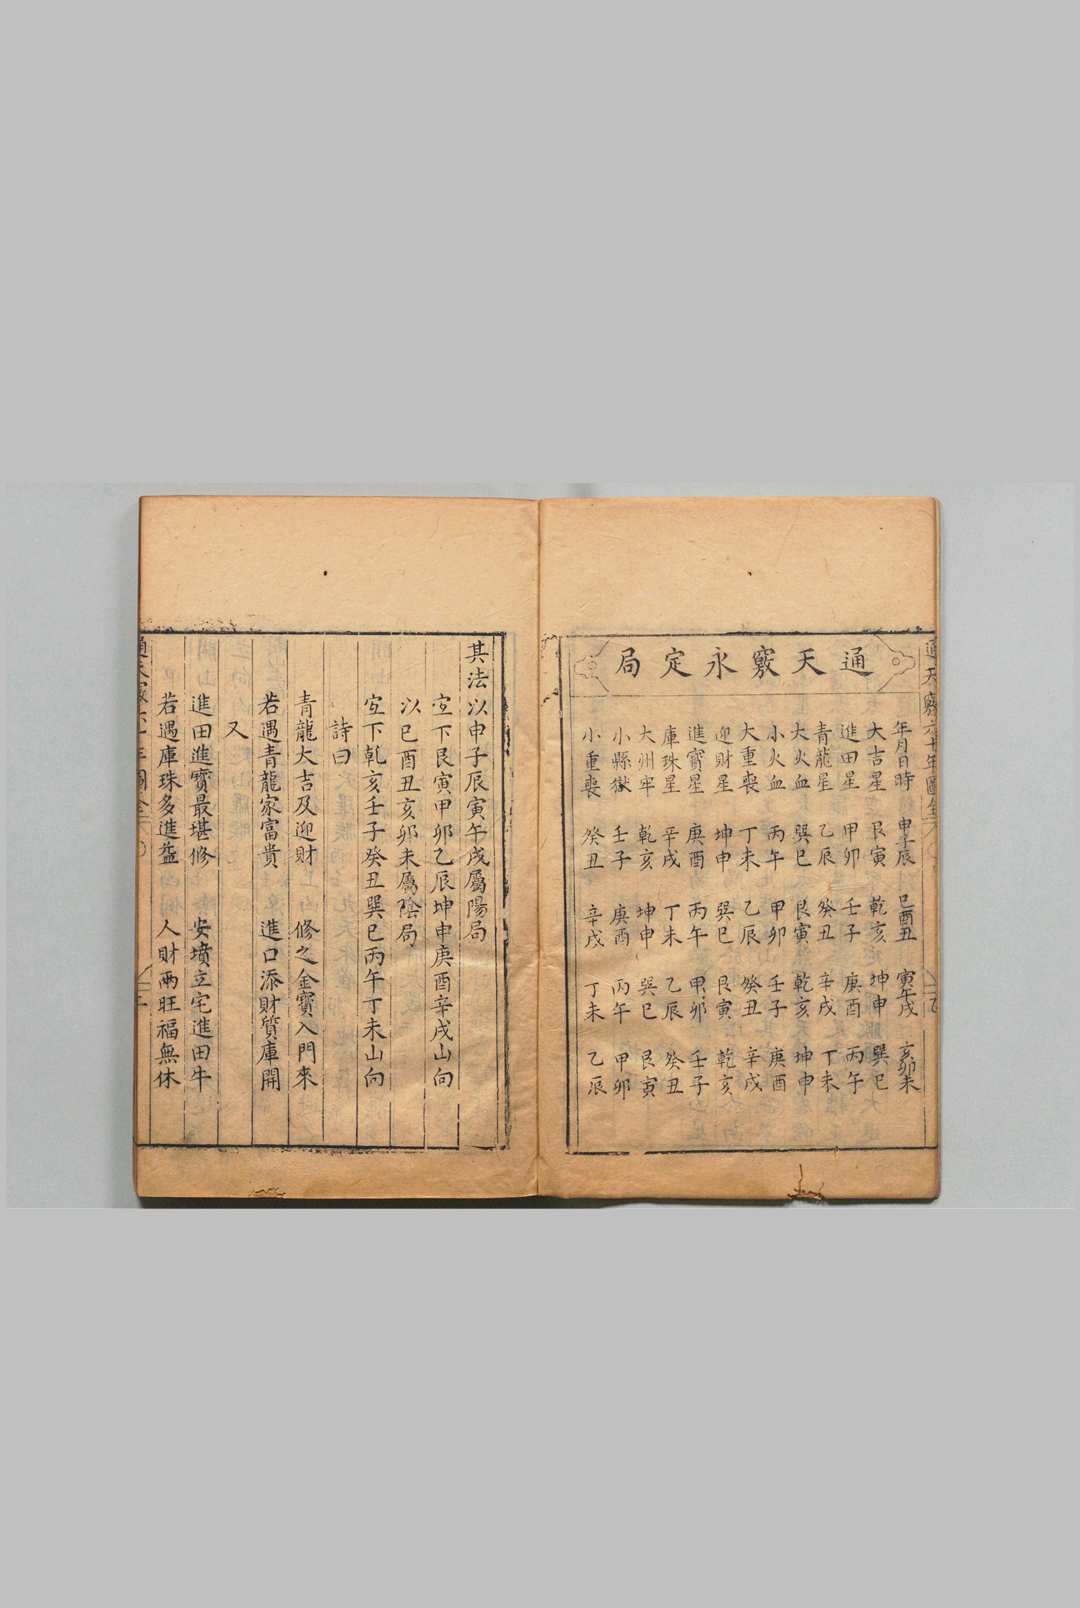 通天竅永定局
年月日時 申子辰 巳酉丑 寅午戌 亥卯未
大吉星 艮寅 乾亥 坤申 巽巳
進田星 甲卯 壬子 庚酉 丙午
青龍星 乙辰 癸丑 辛戌 丁未
大火血 巽巳 艮寅 乾亥 坤申
小火血 丙午 甲卯 壬子 庚酉
大重喪 丁未 乙辰 癸丑 辛戌
迎財星 坤申 巽巳 艮寅 乾亥
進寳星 庚酉 丙午 甲卯 壬子
庫珠星 辛戌 丁未 乙辰 癸丑
大州牢 乾亥 坤申 巽巳 艮寅
小縣獄 壬子 庚酉 丙午 甲卯
小重喪 癸丑 辛戌 丁未 乙辰
其法以申子辰寅午戌屬陽局
宐下艮寅甲卯乙辰坤申庚酉辛戌山向
以巳酉丑亥卯未屬陰局
宐下乾亥壬子癸丑巽巳丙午丁未山向
詩曰
青龍大吉及迎財 修之金寳入門來
若遇青龍家富貴 進口添財質庫開
又
進田進寳最堪修 安墳立宅進田牛
若遇庫珠多進益 人財兩旺福無休